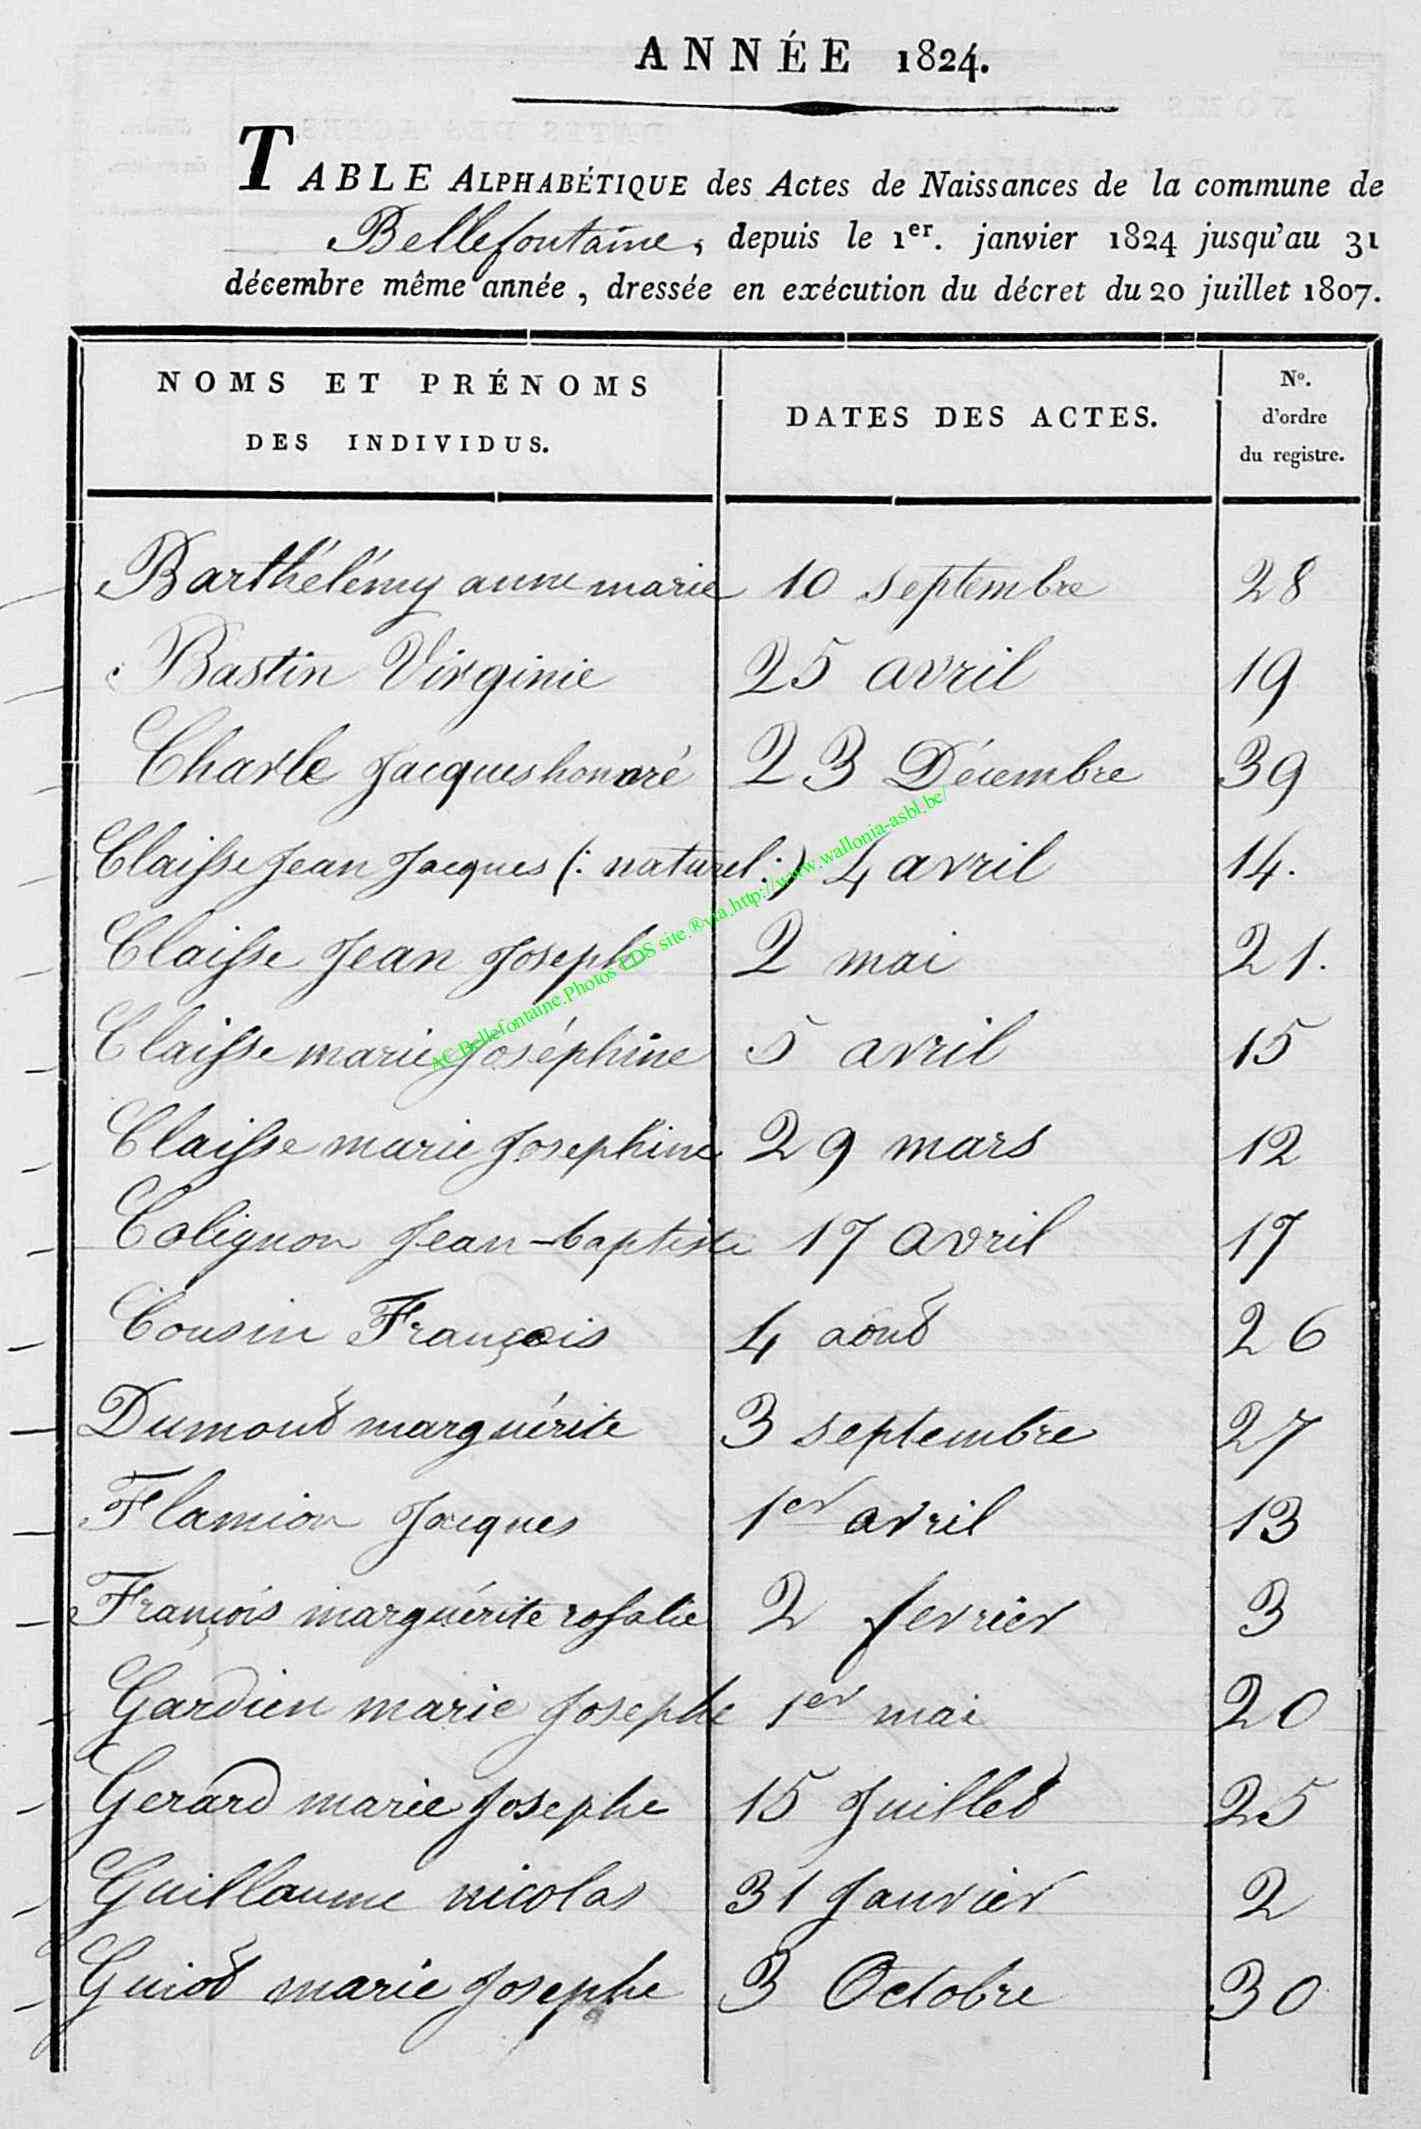 ANNÉE 1824.
TABLE ALPHABÉTIQUE des Actes de Naissances de la commune de
Bellefontaine, depuis le 1er. janvier 1824 jusqu'au 31
décembre même année, dressée en exécution du décret du 20 juillet 1807.
NOMS ET PRÉNOMS
DES INDIVIDUS.
DATES DES ACTES.
No.
d'ordre
du registre.
Barthélémy anne marie 10 septembre 28
Bastin Virginie 25 avril 19
Charle Jacques honoré 23 Décembre 39
Claisse Jean Jacques (: naturel :) 4 avril 14.
Claisse Jean Joseph 2 mai 21.
Claisse marie Joséphine 5 avril 15
Claisse marie Josephine 29 mars 12
Colignon Jean-baptiste 17 avril 17
Cousin François 4 aout 26
Dumont marguérite 3 septembre 27
Flamion Jacques 1er avril 13
François marguérite rosalie 2 fevrier 3
Gardien marie Josephe 1er mai 20
Gerard marie Josephe 15 Juillet 25
Guillaume nicolas 31 Janvier 2
Guiot marie Josephe 3 Octobre 30
AC.Bellefontaine.Photos EDS site.®via.http://www.wallonia-asbl.be/